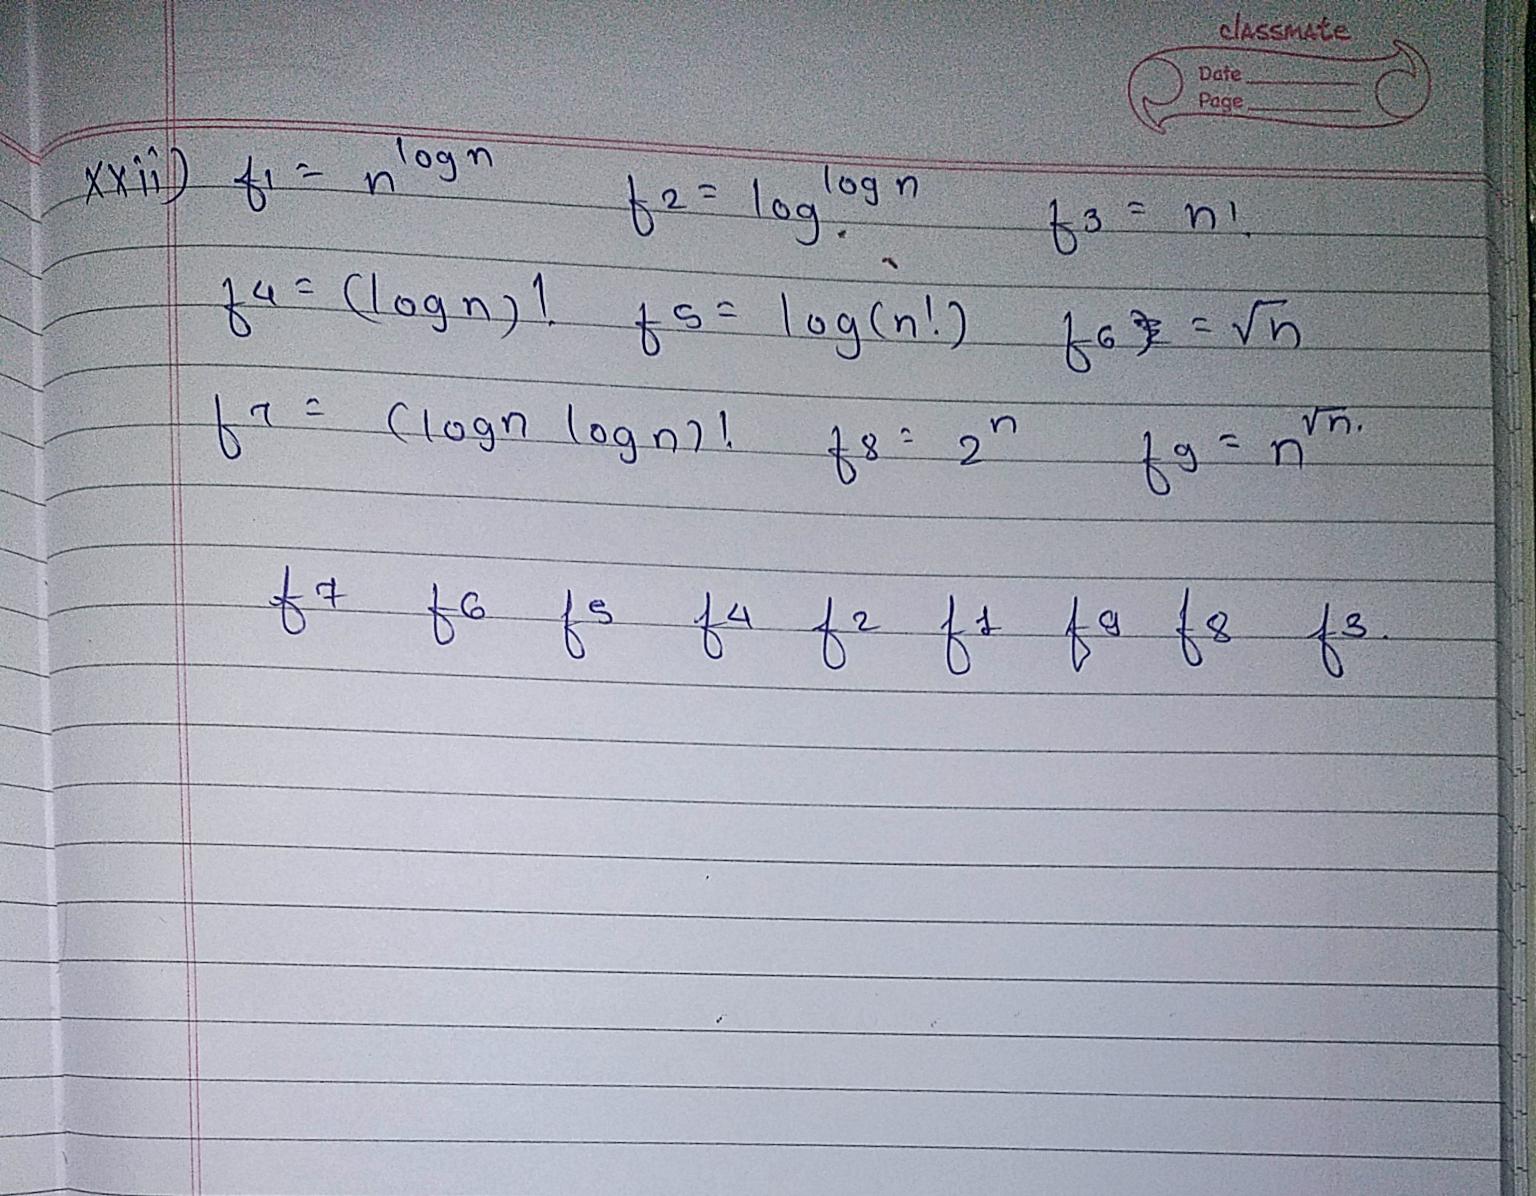 classmate
Date
Page
xxii) f1 = n^log n f2 = log^log n f3 = n!
f4 = (log n)! f5 = log(n!) f6 = √n
f7 = (logn logn)! f8 = 2^n f9 = n^√n.
f7 f6 f5 f4 f2 f1 f9 f8 f3.